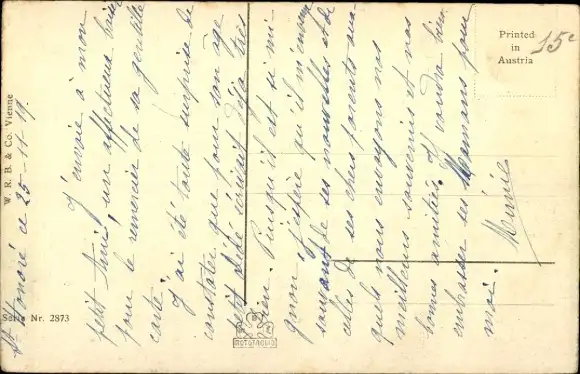 St Honoré ce 25-11-19.
J'envoie à mon
petit ami, une affectueux baiser
pour le remercier de sa gentille
carte.
J'ai été toute surprise de
constater que pour son âge
petit dédé écrivait déjà très
bien. Puisqu'il est si mi-
gnon, j'espère qu'il m'enverra
souvent de ses nouvelles et de
celles de ses chers parents aux-
quels nous envoyons nos
meilleurs souvenirs et nos
bonnes amitiés. Il voudra bien
embrasser ses Mamans pour
moi.
Printed
in
Austria
15c
W. R. B. & Co. Vienne
Serie Nr. 2873